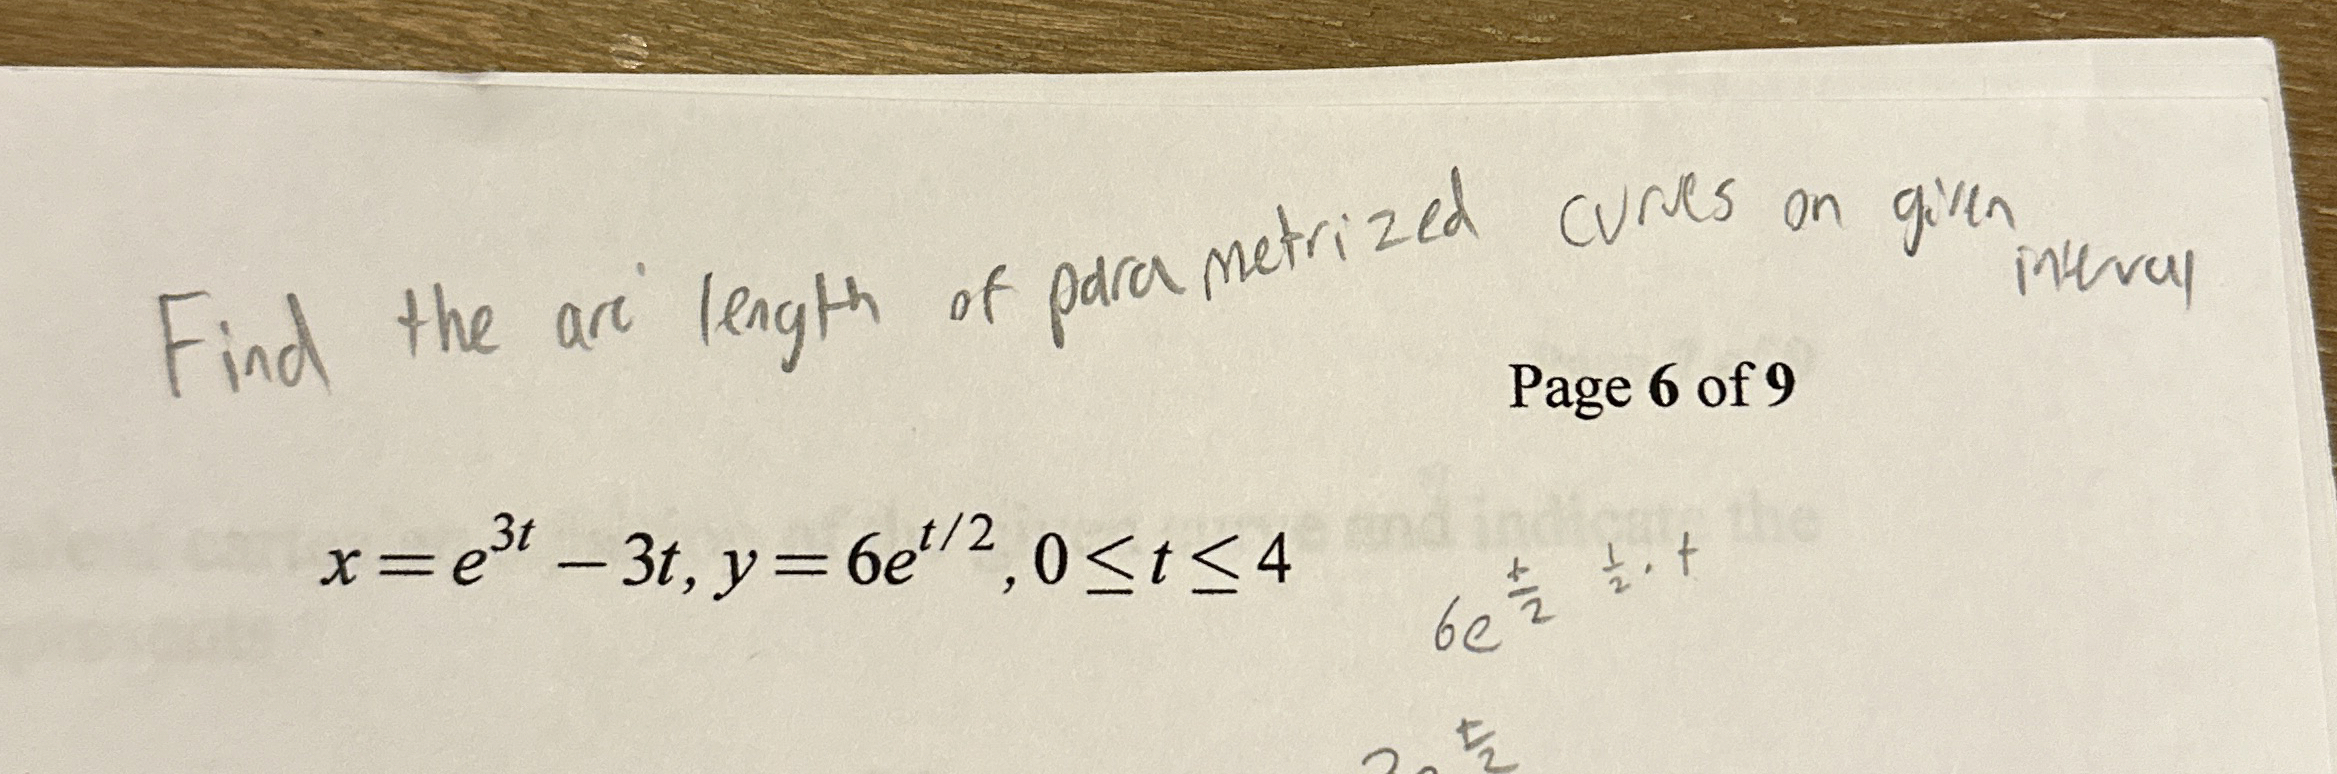 Find the arc length of parametrized curves on given
interval
Page 6 of 9
x = e^{3t} − 3t, y = 6e^{t/2}, 0 ≤ t ≤ 4
6e^{t/2} 1/2 · t